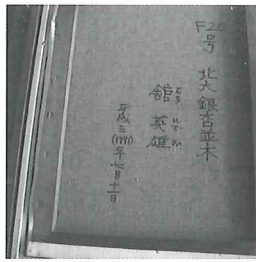 F20号 北大銀杏並木
舘 英雄
平成三(1991)年七月十一日